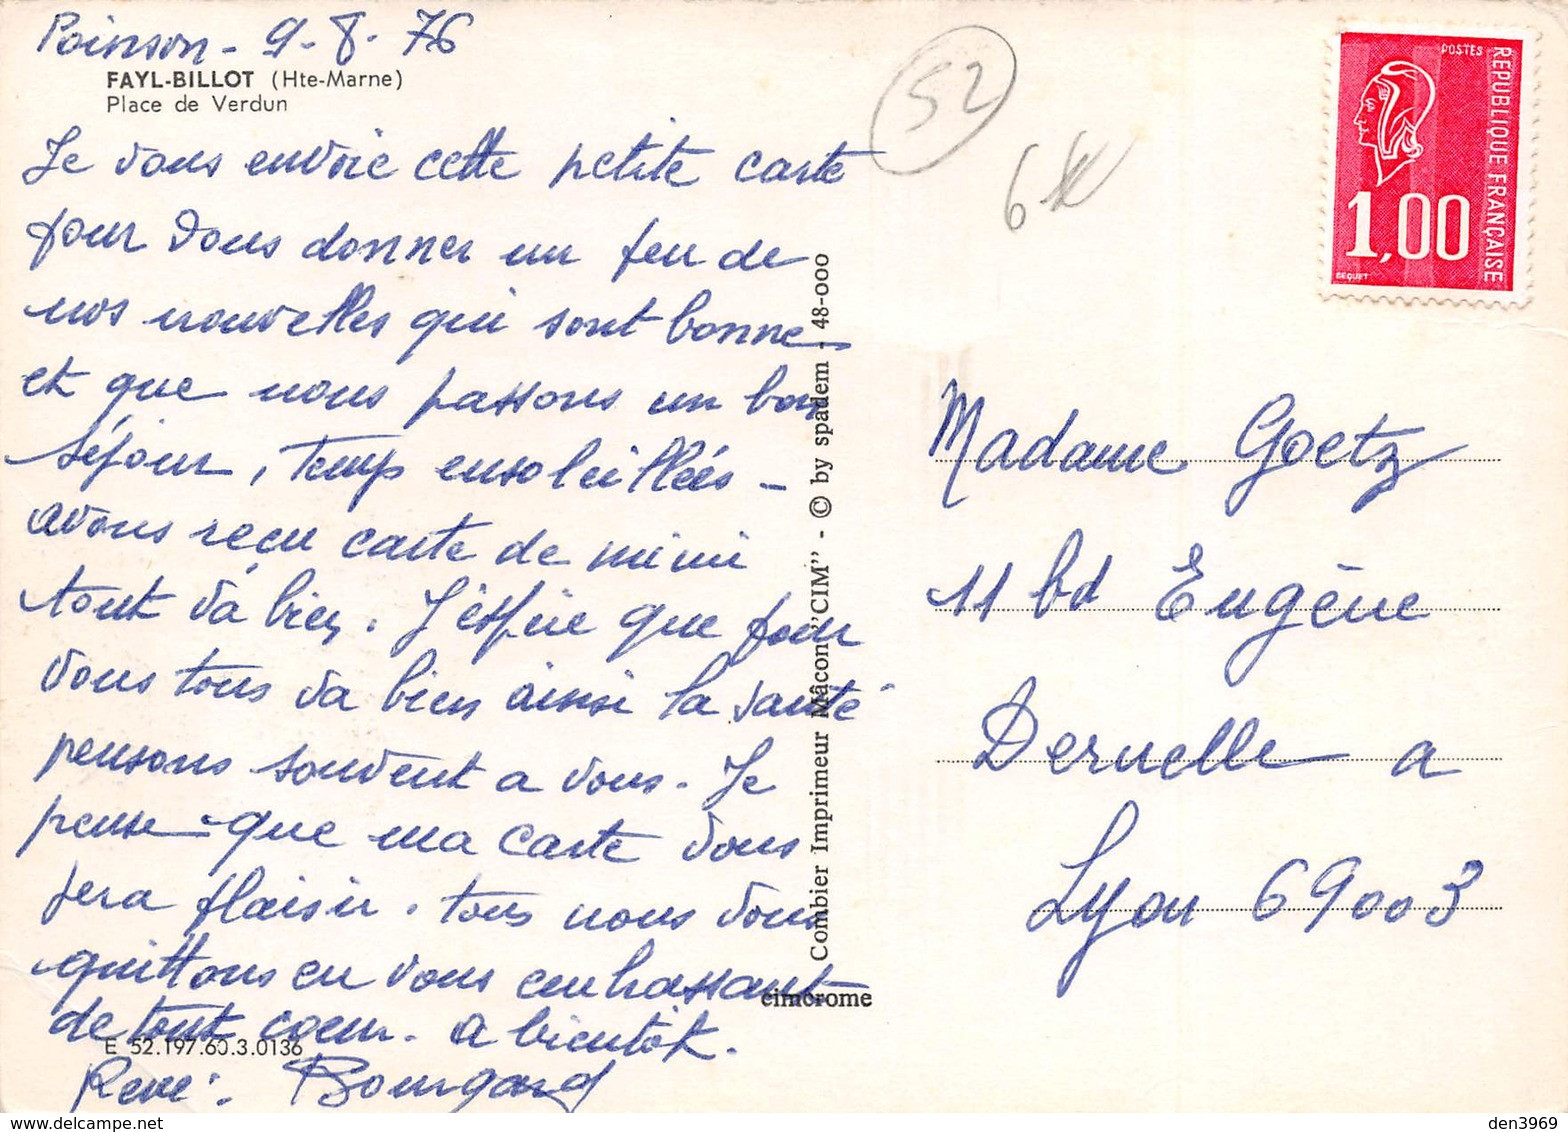 Poinson - 9-8-76
FAYL-BILLOT (Hte-Marne)
Place de Verdun
Je vous envoie cette petite carte
pour vous donner un peu de
nos nouvelles qui sont bonne
et que nous passons un bon
séjour, Temp ensoleillées -
avons reçu carte de mimi
tout và bien. J'éspère que pour
vous tous va bien ainsi la santé
pensons souvent a vous. Je
pense que ma carte vous
fera plaisir. tous nous vous
quittons en vous embrassant
de tout coeur. a bientôt.
René. Bourgard
E 52.197.60.3.0136
Combier Imprimeur Mâcon "CIM" - © by spadem - 48-000
cimcrome
52
6
POSTES
REPUBLIQUE FRANÇAISE
1,00
BEQUET
Madame Goetz
11 bd Eugène
Deruelle a
Lyon 69003
den3969
www.delcampe.net